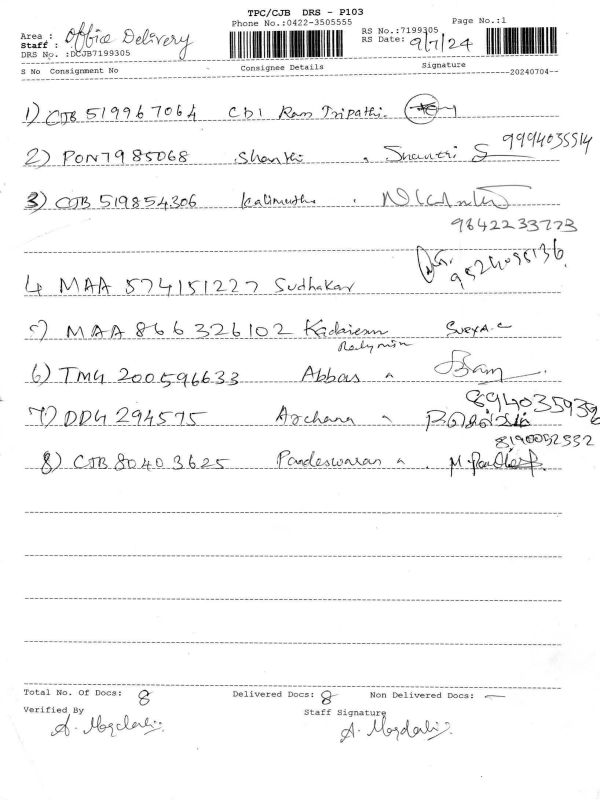 TPC/CJB DRS - P103
Phone No.:0422-3505555
Page No.:1
Area : Office Delivery
Staff :
DRS No. :DCJB7199305
RS No.:7199305
RS Date: 9/7/24
S No Consignment No Consignee Details Signature
20240704
1) CJB 519967064 CDI Ram Tripathi
2) PON7985068 Shanthi Shanthi S 9994035514
3) CJB 519854306 Kalimuthu
9842233773
4 MAA 574151227 Sudhakar
5) MAA 866326102 Kadairam Surya.C
Readymin
6) TMG 200596633 Abbas
7) DDG 294575 Archana
8190052332
8) CJB 80403625 Pandeswaran
Total No. Of Docs: 8 Delivered Docs: 8 Non Delivered Docs: —
Verified By Staff Signature